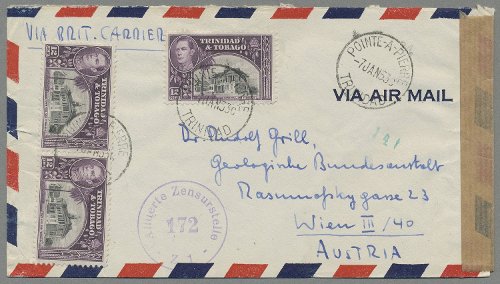 VIA BRIT. CARRIER
TRINIDAD
& TOBAGO
12c
POINTE-A-PIERRE
TRINIDAD
VIA AIR MAIL
TRINIDAD
TRINIDAD
& TOBAGO
12c
TRINIDAD
& TOBAGO
12c
Dr. Rudolf Grill,
Geologische Bundesanstalt
Rasumofskygasse 23
Wien III/40
AUSTRIA
Alliierte Zensurstelle
172